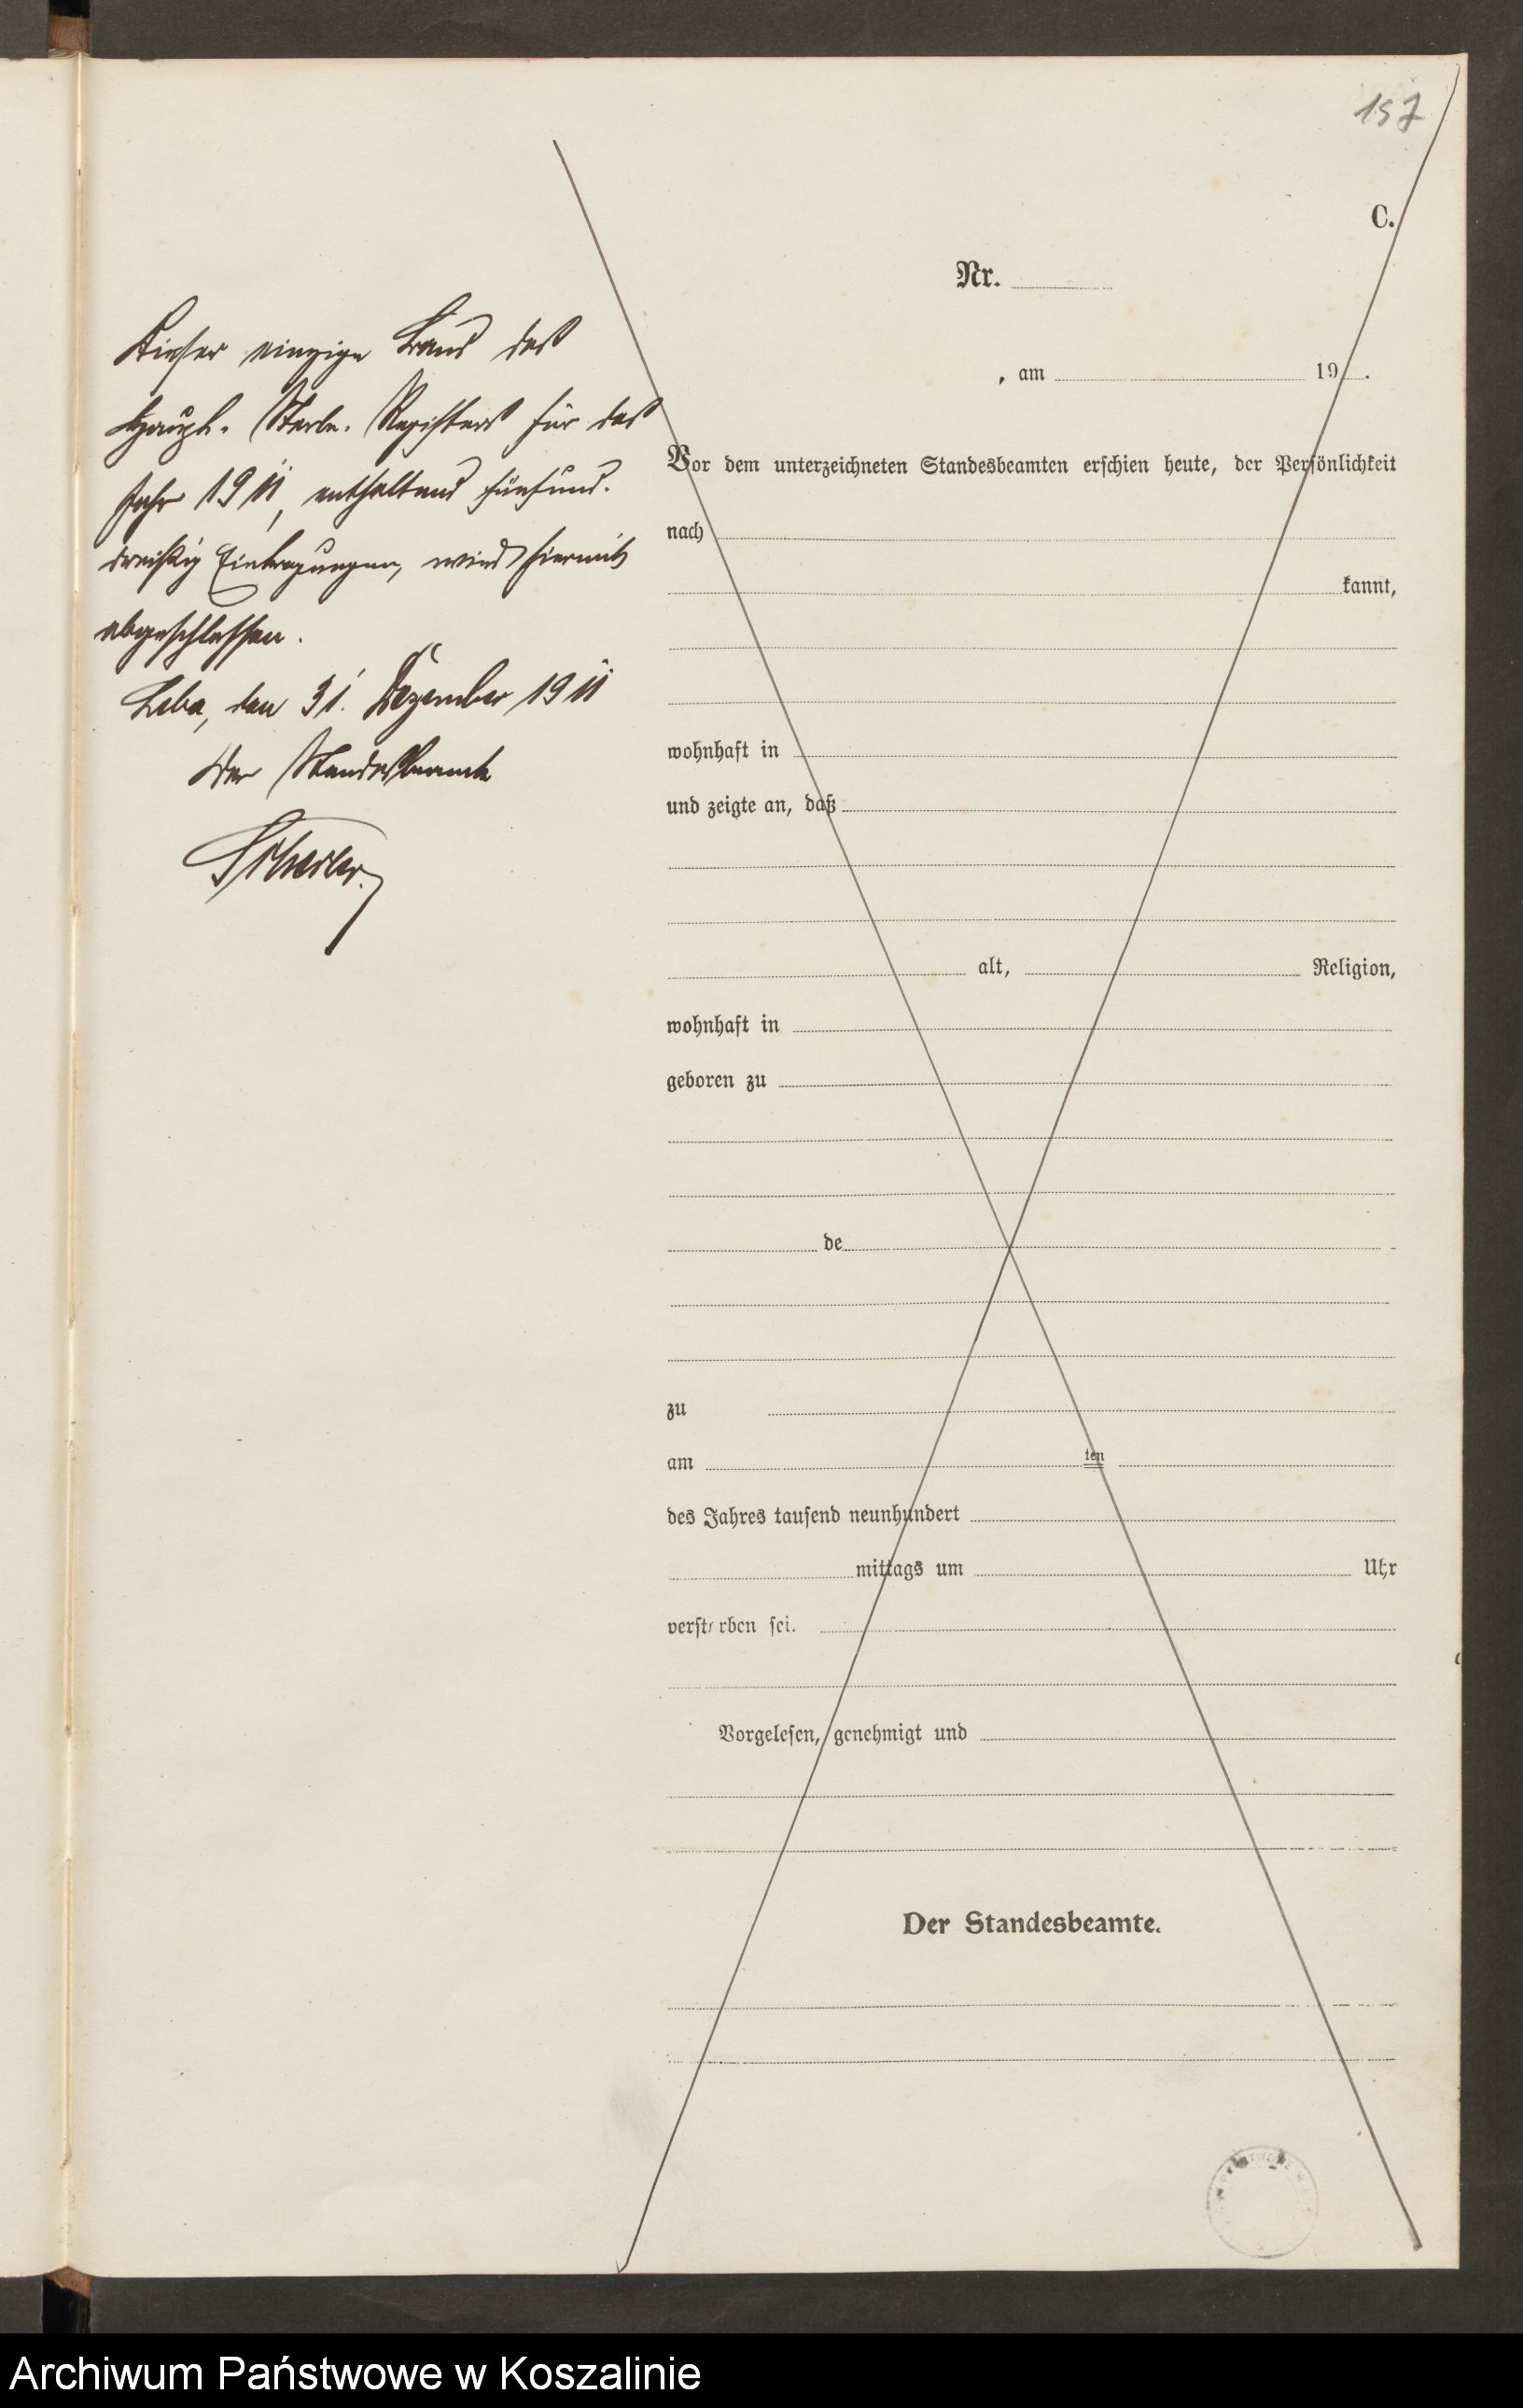 157
C.
Nr.
Dieser einzige Band des
Haupt-Sterbe-Registers für das
Jahr 1911, enthaltend fünfund-
dreißig Eintragungen, wird hiermit
abgeschlossen.
Leba, den 31. Dezember 1911
Der Standesbeamte
, am 19 .
Vor dem unterzeichneten Standesbeamten erschien heute, der Persönlichkeit
nach
kannt,
wohnhaft in
und zeigte an, daß
alt, Religion,
wohnhaft in
geboren zu
de
zu
am ten
des Jahres tausend neunhundert
mittags um Uhr
verstorben sei.
Vorgelesen, genehmigt und
Der Standesbeamte.
Archiwum Państwowe w Koszalinie